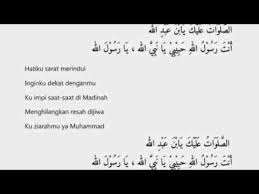 الصَّلَوَاتُ عَلَيْكَ يَابْنَ عَبْدِ الله
أَنْتَ رَسُوْلُ الله حَبِيْبِيْ يَا نَبِيَّ الله ، يَا رَسُوْلَ الله
Hatiku sarat merindui
Inginku dekat denganmu
Ku impi saat-saat di Madinah
Menghilangkan resah dijiwa
Ku ziarahmu ya Muhammad
الصَّلَوَاتُ عَلَيْكَ يَابْنَ عَبْدِ الله
أَنْتَ رَسُوْلُ الله حَبِيْبِيْ يَا نَبِيَّ الله ، يَا رَسُوْلَ الله